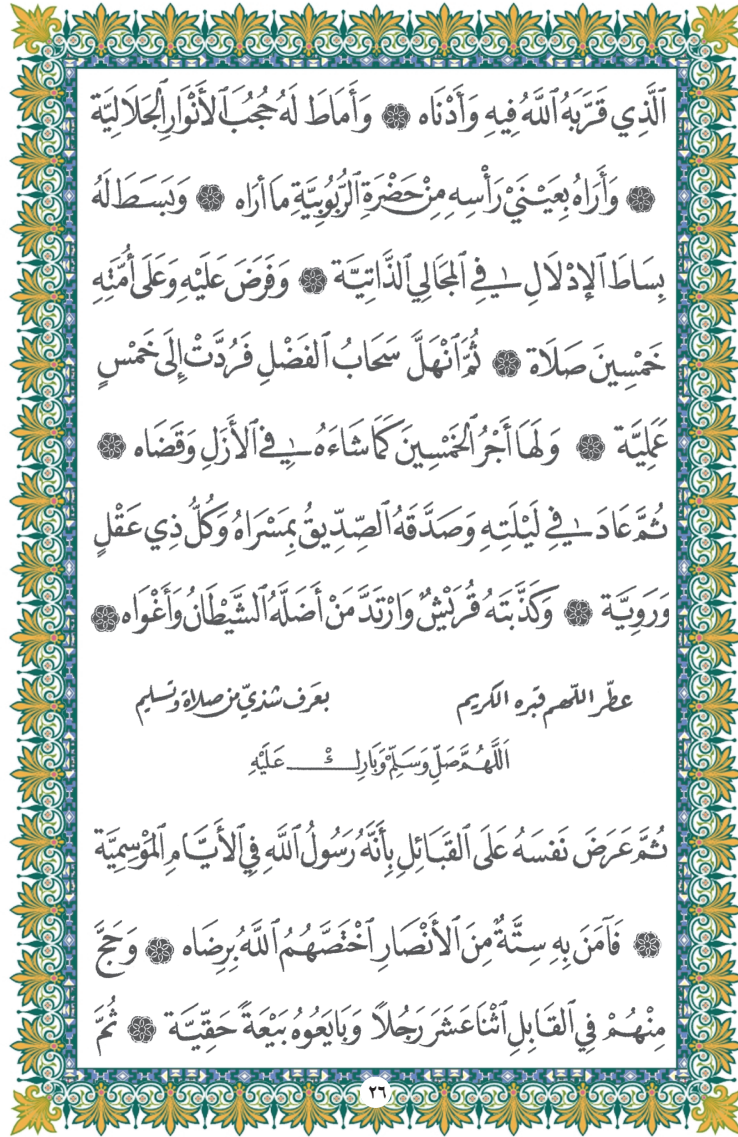 ٱلَّذِي قَرَّبَهُ ٱللَّهُ فِيهِ وَأَدْنَاه ۞ وَأَمَاطَ لَهُ حُجُبَ ٱلأَنْوَارِ ٱلجَلَالِيَّة
۞ وَأَرَاهُ بِعَيْنَيْ رَأْسِهِ مِنْ حَضْرَةِ ٱلرُّبُوبِيَّةِ مَا أَرَاه ۞ وَبَسَطَ لَهُ
بِسَاطَ ٱلإِدْلَالِ فِي ٱلمَجَالِي ٱلذَّاتِيَّة ۞ وَفَرَضَ عَلَيْهِ وَعَلَى أُمَّتِهِ
خَمْسِينَ صَلَاة ۞ ثُمَّ ٱنْهَلَّ سَحَابُ ٱلفَضْلِ فَرُدَّتْ إِلَى خَمْسٍ
عَمَلِيَّة ۞ وَلَهَا أَجْرُ ٱلخَمْسِينَ كَمَا شَاءَهُ فِي ٱلأَزَلِ وَقَضَاه ۞
ثُمَّ عَادَ فِي لَيْلَتِهِ وَصَدَّقَهُ ٱلصِّدِّيقُ بِمَسْرَاهُ وَكُلُّ ذِي عَقْلٍ
وَرَوِيَّة ۞ وَكَذَّبَتَهُ قُرَيْشٌ وَارْتَدَّ مَنْ أَضَلَّهُ ٱلشَّيْطَانُ وَأَغْوَاه ۞
عطّر اللّهم قبره الكريم بعَرف شذيّ من صلاة وتسليم
اَللَّهُمَّ صَلِّ وَسَلِّمْ وَبَارِكْ عَلَيْهِ
ثُمَّ عَرَضَ نَفسَهُ عَلَى ٱلقَبَائِلِ بِأَنَّهُ رَسُولُ ٱللَّهِ فِي ٱلأَيَّامِ ٱلمَوْسِمِيَّة
۞ فَآمَنَ بِهِ سِتَّةٌ مِنَ ٱلأَنْصَارِ ٱخْتَصَّهُمُ ٱللَّهُ بِرِضَاه ۞ وَحَجَّ
مِنْهُمْ فِي ٱلقَابِلِ ٱثْنَا عَشَرَ رَجُلاً وَبَايَعُوهُ بَيْعَةً حَقِّيَّة ۞ ثُمَّ
٢٦